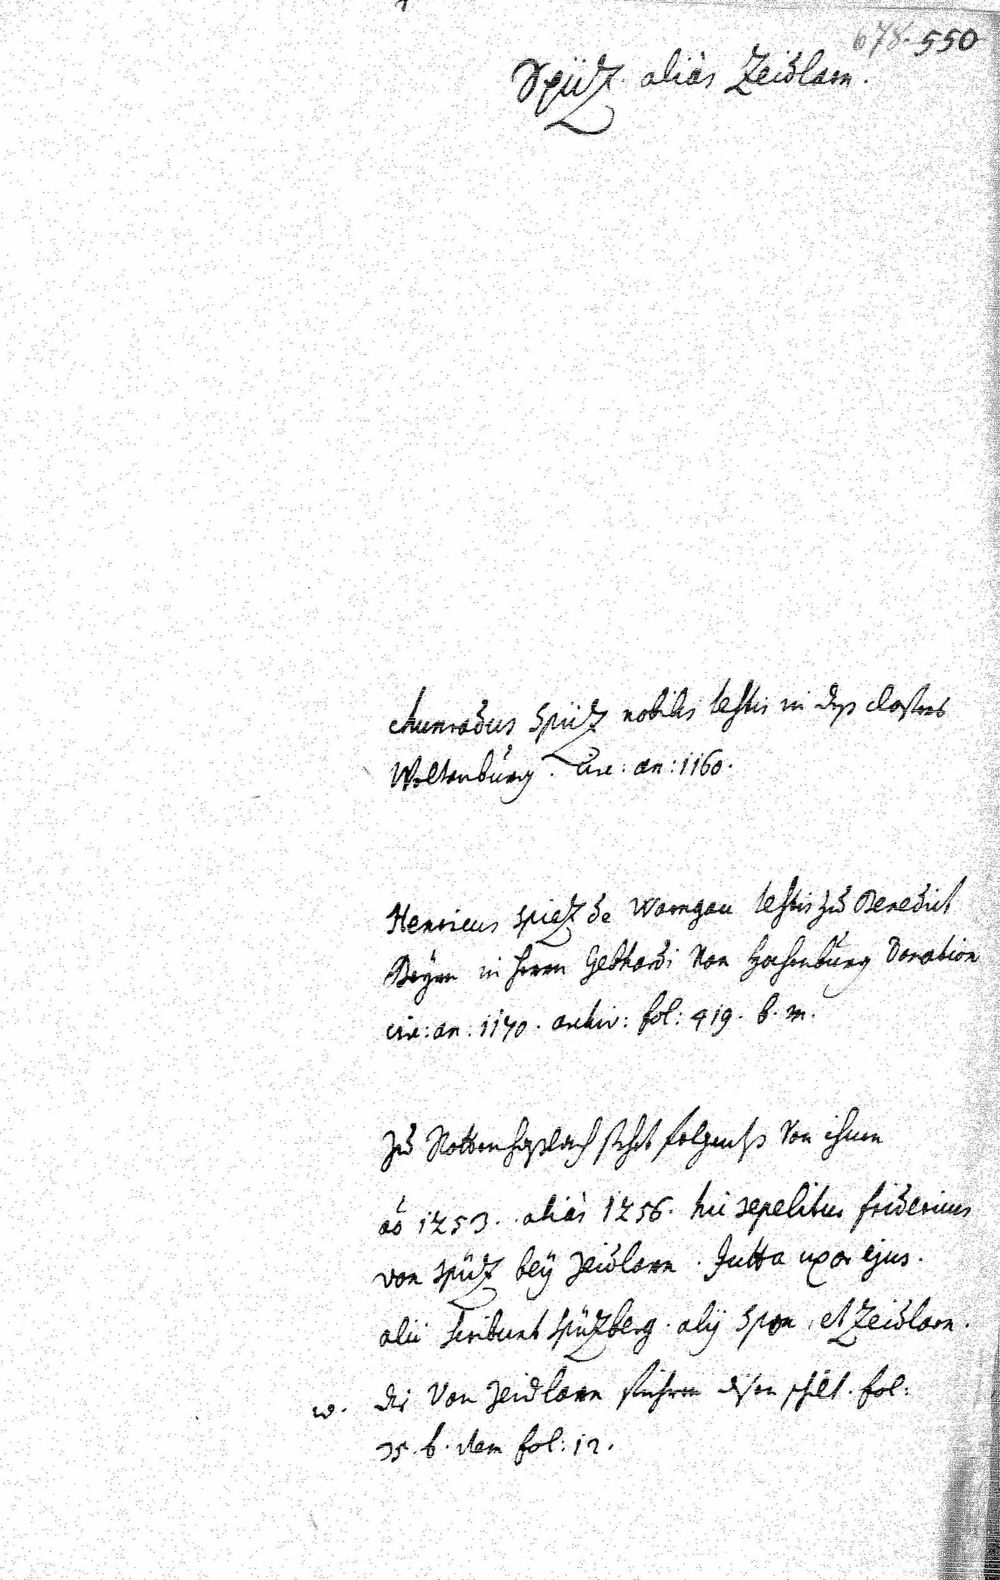 678. 550
Spüz aliàs Zeidlarn.
Chunradus Spüz nobilis testis in des closters
Weltenburg. Circ: an: 1160.
Henricus Spiez de Warngau testis zu Benedict
Beÿrn in herrn Gebhardi Von Hohenburg Donation
circ: an: 1170. archiv: fol: 419. b. m.
Zu Rattenhaslach stehet folgents Von ihnen
aõ 1253. aliàs 1256. hic sepelitur fridericus
von Spüz beÿ Zeidlarn. Jutta uxor ejus.
alii scribunt Spüzberg. alij Spon, et Zeidlarn.
w. die Von Zeidlarn führen disen schilt. fol:
35. b. item fol: 12.